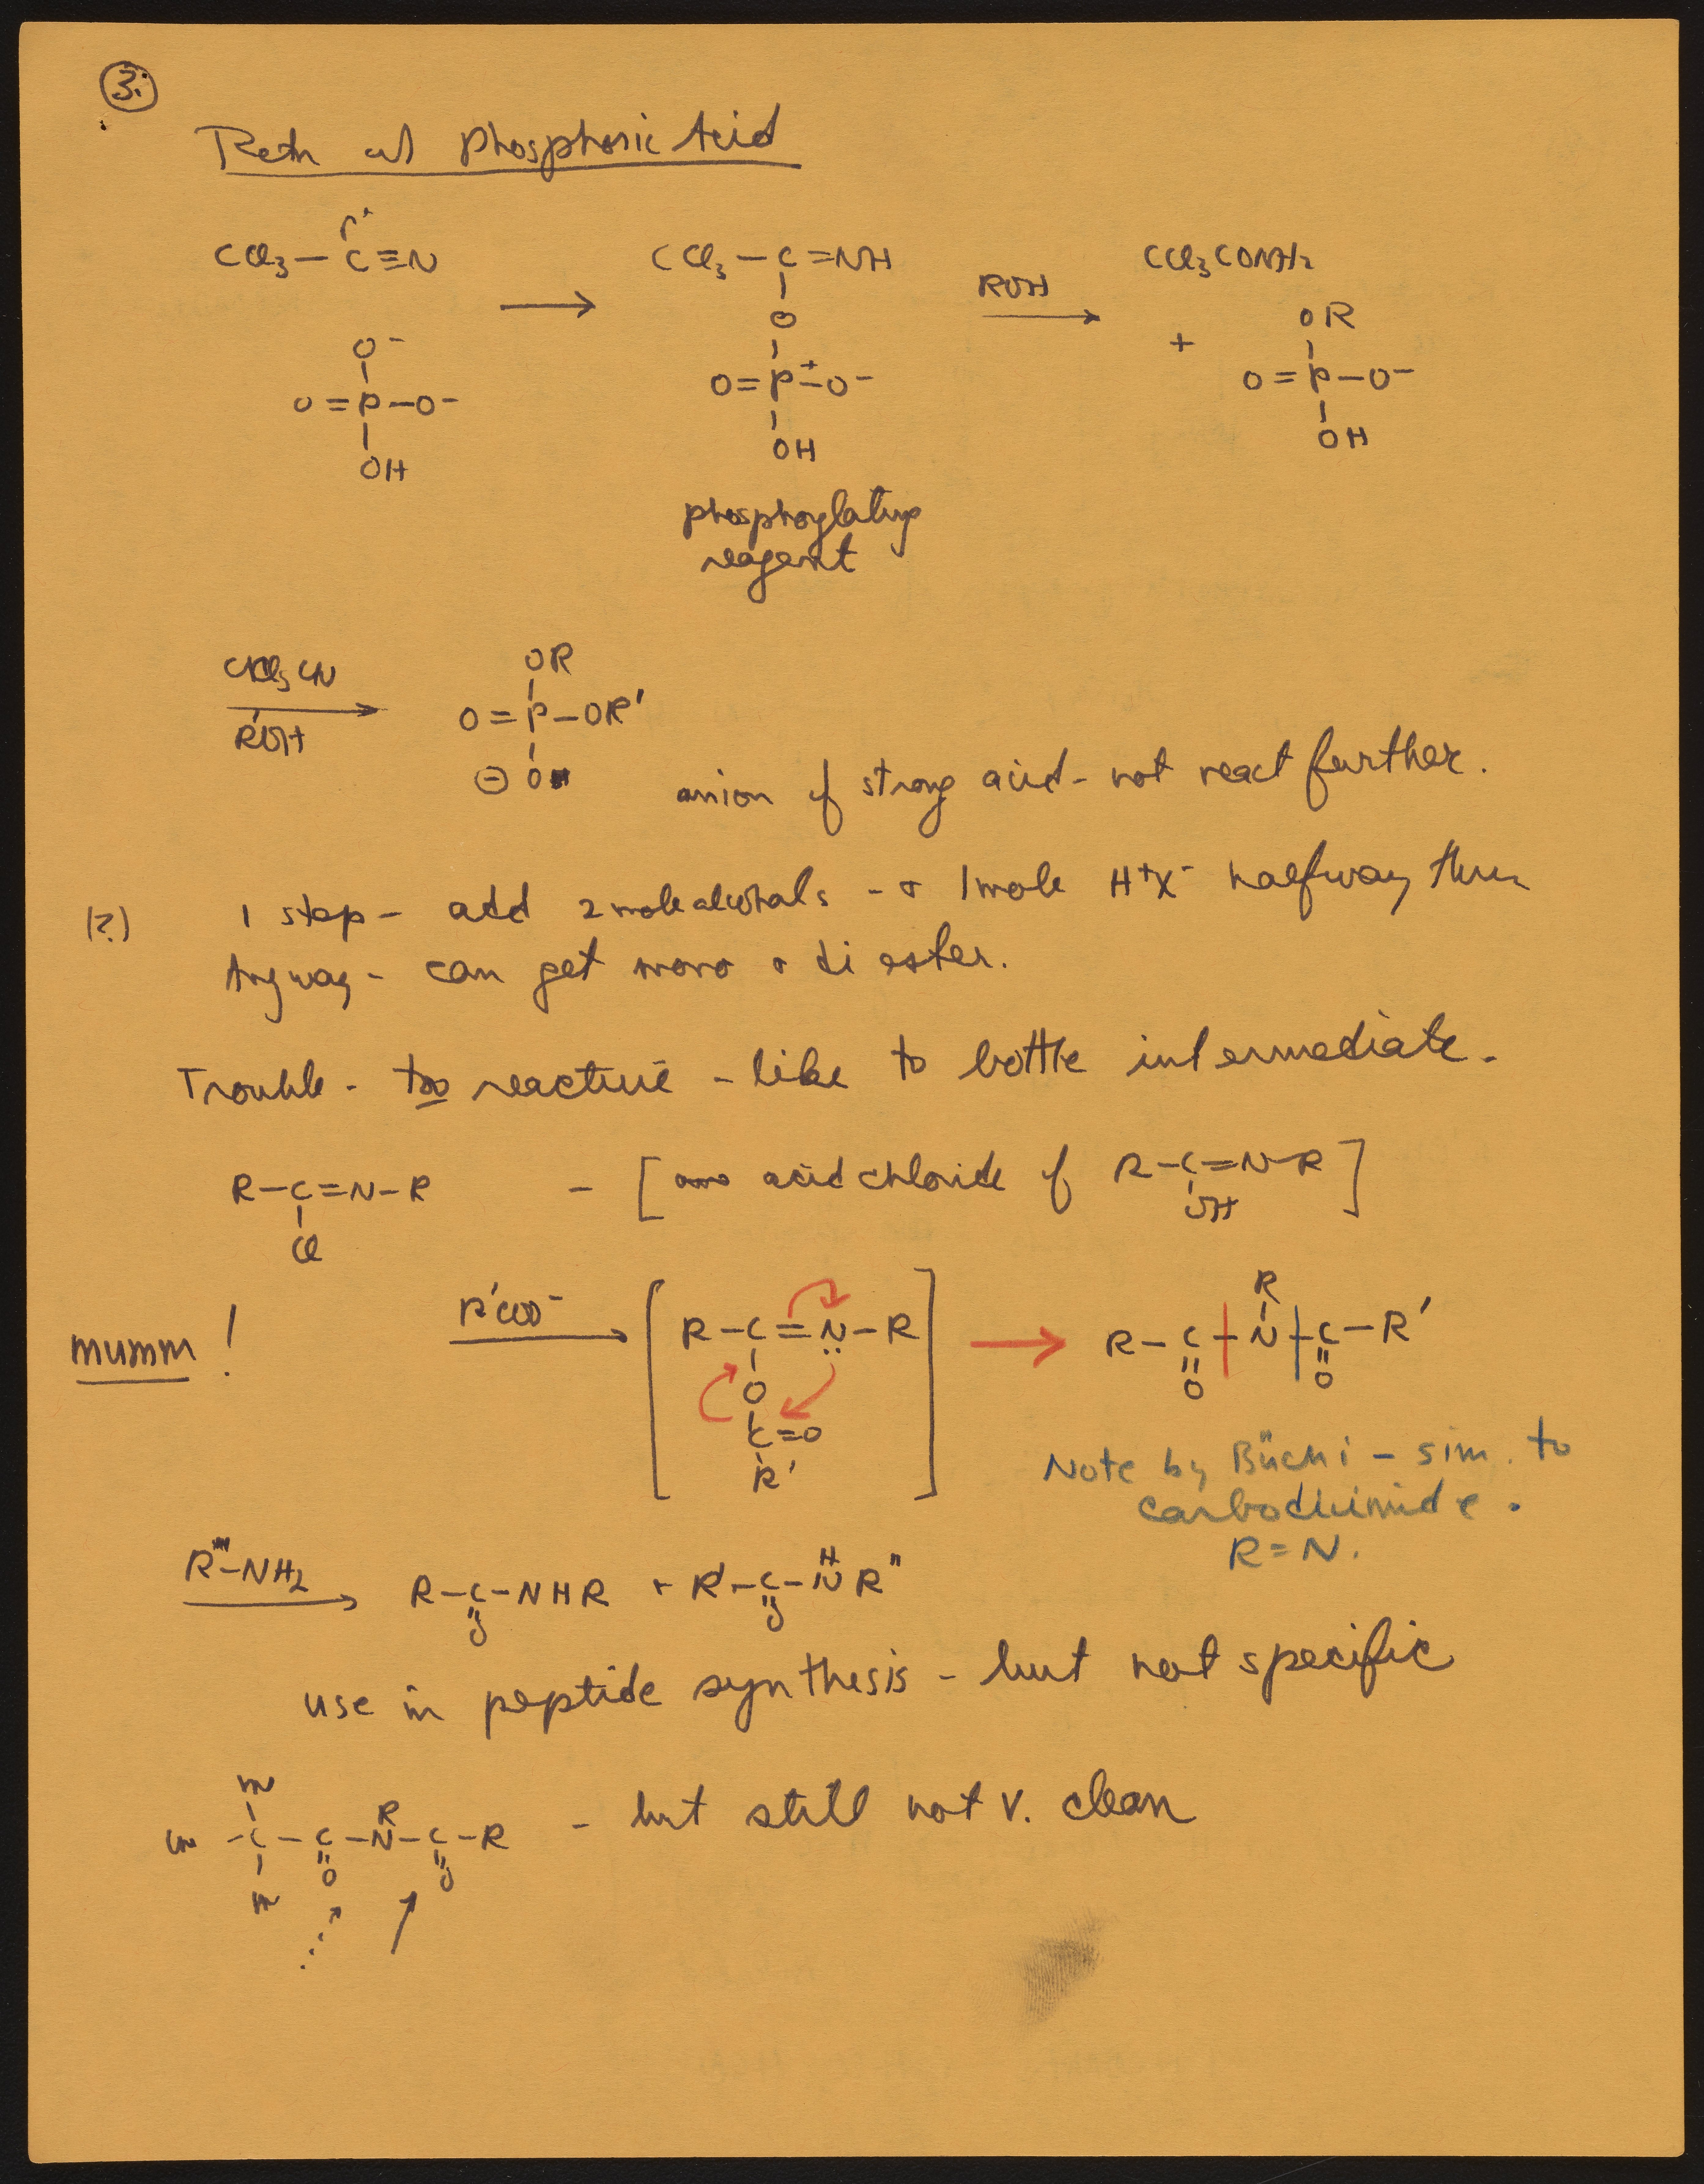 3.
Rctn w/ Phosphoric Acid
CCl3—C≡N
CCl3—C=NH
ROH
CCl3CONH2
O
OR
O-
+
O=P—O-
O=P+—O-
O=P—O-
OH
OH
OH
phosphorylating
reagent
CCl3CN
R'OH
OR
O=P—OR'
⊖ O
anion of strong acid - not react further.
(?)
1 step - add 2 mole alcohols - + 1 mole H+X- halfway thru
Anyway - can get mono + di ester.
Trouble - too reactive - like to bottle intermediate.
R—C=N—R
Cl
- [ acid chloride of R—C=N—R ]
OH
mumm !
R'COO-
R—C=N—R
O
C=O
R'
R
R—C—N—C—R'
O
O
Note by Büchi - sim. to
carbodiimide.
R=N.
R"—NH2
R—C—NHR + R'—C—NR"
H
O
O
use in peptide synthesis - but not specific
m
R
m—C—C—N—C—R
O
O
m
- but still not v. clean